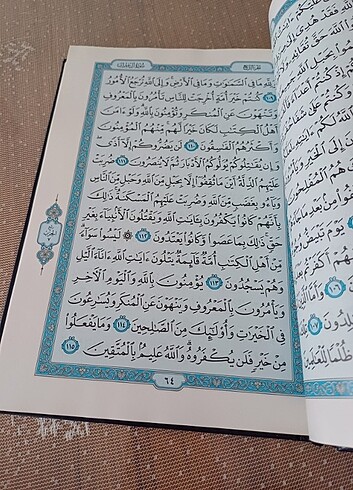 فَقَدْ هُدِىَ إِلَىٰ
ٱللَّهَ حَقَّ
هُمُ ٱلْمُفْلِحُونَ
يَوْمَ تَبْيَضُّ
الجزء الرابع سورة آل عمران
وَلِلَّهِ مَا فِى ٱلسَّمَٰوَٰتِ وَمَا فِى ٱلْأَرْضِ وَإِلَى ٱللَّهِ تُرْجَعُ ٱلْأُمُورُ
١٠٩ كُنتُمْ خَيْرَ أُمَّةٍ أُخْرِجَتْ لِلنَّاسِ تَأْمُرُونَ بِٱلْمَعْرُوفِ
وَتَنْهَوْنَ عَنِ ٱلْمُنكَرِ وَتُؤْمِنُونَ بِٱللَّهِ وَلَوْ ءَامَنَ
أَهْلُ ٱلْكِتَٰبِ لَكَانَ خَيْرًا لَّهُم مِّنْهُمُ ٱلْمُؤْمِنُونَ
وَأَكْثَرُهُمُ ٱلْفَٰسِقُونَ ١١٠ لَن يَضُرُّوكُمْ إِلَّآ أَذًى
وَإِن يُقَٰتِلُوكُمْ يُوَلُّوكُمُ ٱلْأَدْبَارَ ثُمَّ لَا يُنصَرُونَ ١١١ ضُرِبَتْ
عَلَيْهِمُ ٱلذِّلَّةُ أَيْنَ مَا ثُقِفُوٓا۟ إِلَّا بِحَبْلٍ مِّنَ ٱللَّهِ وَحَبْلٍ مِّنَ ٱلنَّاسِ
وَبَآءُو بِغَضَبٍ مِّنَ ٱللَّهِ وَضُرِبَتْ عَلَيْهِمُ ٱلْمَسْكَنَةُ ذَٰلِكَ
بِأَنَّهُمْ كَانُوا۟ يَكْفُرُونَ بِـَٔايَٰتِ ٱللَّهِ وَيَقْتُلُونَ ٱلْأَنۢبِيَآءَ بِغَيْرِ
حَقٍّ ذَٰلِكَ بِمَا عَصَوا۟ وَّكَانُوا۟ يَعْتَدُونَ ١١٢ لَيْسُوا۟ سَوَآءً
مِّنْ أَهْلِ ٱلْكِتَٰبِ أُمَّةٌ قَآئِمَةٌ يَتْلُونَ ءَايَٰتِ ٱللَّهِ ءَانَآءَ ٱلَّيْلِ
وَهُمْ يَسْجُدُونَ ١١٣ يُؤْمِنُونَ بِٱللَّهِ وَٱلْيَوْمِ ٱلْءَاخِرِ
وَيَأْمُرُونَ بِٱلْمَعْرُوفِ وَيَنْهَوْنَ عَنِ ٱلْمُنكَرِ وَيُسَٰرِعُونَ
فِى ٱلْخَيْرَٰتِ وَأُو۟لَٰٓئِكَ مِنَ ٱلصَّٰلِحِينَ ١١٤ وَمَا يَفْعَلُوا۟
مِنْ خَيْرٍ فَلَن يُكْفَرُوهُ وَٱللَّهُ عَلِيمٌۢ بِٱلْمُتَّقِينَ ١١٥
٦٤